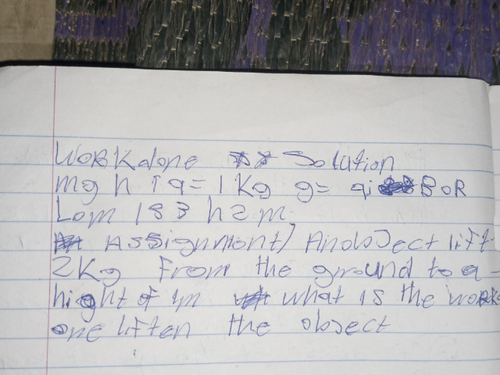 WORKdone Solution
mg h 1a = 1Kg g= 9i8 BOR
Lom 183 h2m
Assignment/ AndOJect lift
2Kg From the ground to a
hight of 1m what is the works
one liften the object